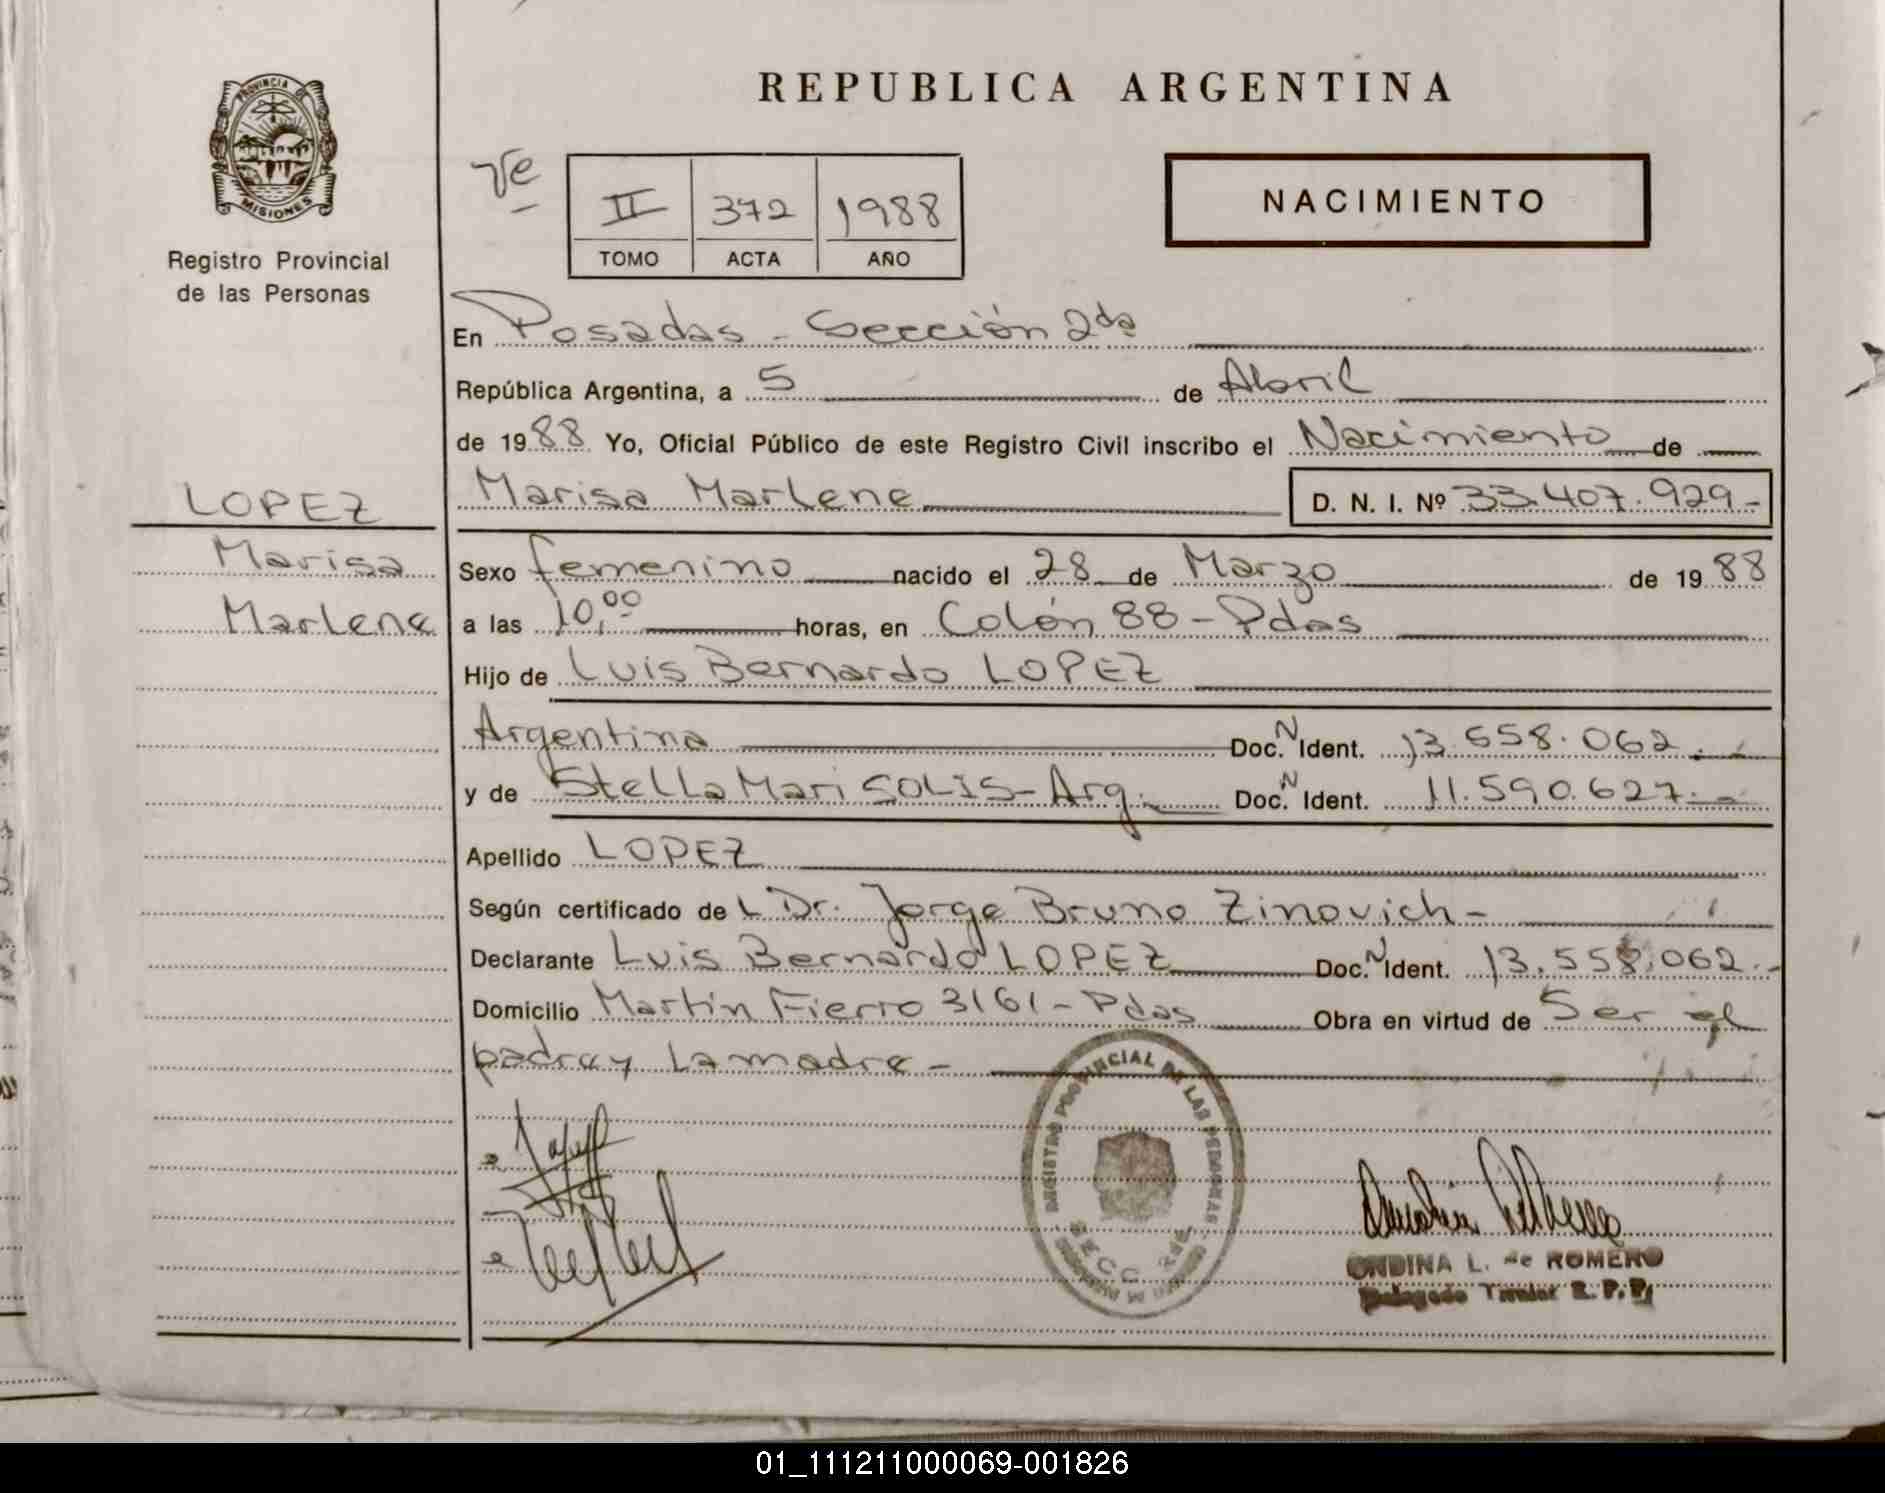 PROVINCIA DE
MISIONES
Registro Provincial
de las Personas
REPUBLICA ARGENTINA
Ve
II 372 1988
TOMO ACTA AÑO
NACIMIENTO
En Posadas - Sección 2da
República Argentina, a 5 de Abril
de 1988 Yo, Oficial Público de este Registro Civil inscribo el Nacimiento de
LOPEZ
Marisa Marlene D. N. I. Nº 33.407.929-
Marisa
Sexo femenino nacido el 28 de Marzo de 1988
Marlene
a las 10,00 horas, en Colón 88 - Pdas
Hijo de Luis Bernardo LOPEZ
Argentina Doc. N Ident. 13.558.062.-
y de Stella Mari SOLIS - Arg. Doc. N Ident. 11.590.627.-
Apellido LOPEZ
Según certificado de L Dr. Jorge Bruno Zinovich -
Declarante Luis Bernardo LOPEZ Doc. N Ident. 13.558.062.-
Domicilio Martín Fierro 3161 - Pdas Obra en virtud de Ser el
padre y la madre -
REGISTRO PROVINCIAL DE LAS PERSONAS
SECC. 2da
ONDINA L. de ROMERO
Delegado Titular R. P. P.
01_111211000069-001826